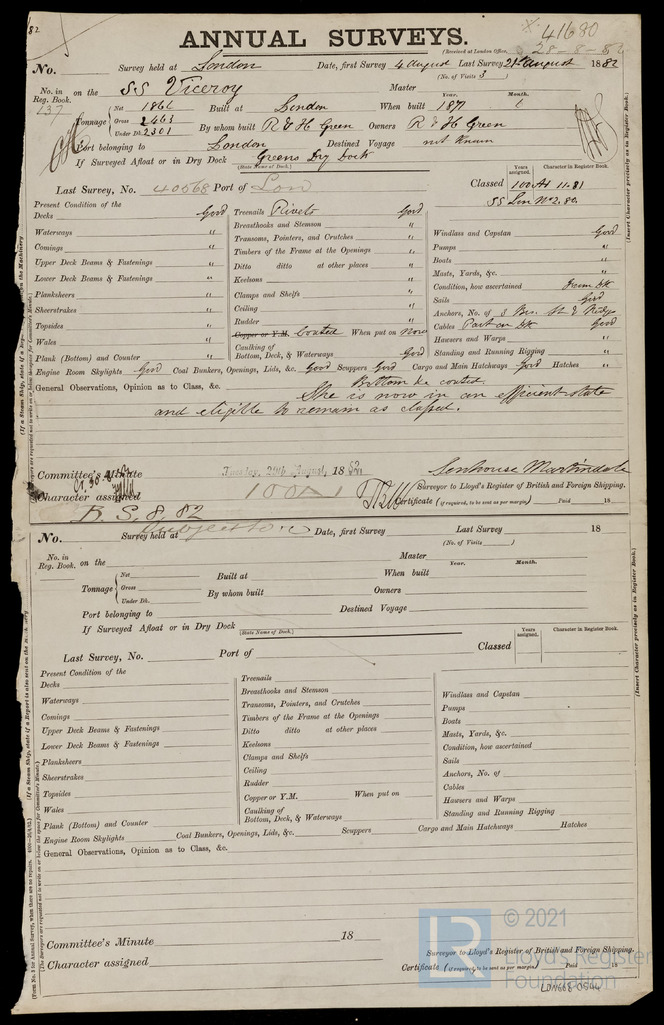 41680
ANNUAL SURVEYS.
(Received at London Office, 28-8-82
82
No. Survey held at London Date, first Survey 4 August Last Survey 21st August 1882
(No. of Visits 3)
No. in Reg. Book. 137 on the SS Viceroy Master
Tonnage Net Gross 2463 Under Dk. 2301
Built at London When built Year. 1871 Month.
By whom built R & H Green Owners R & H Green
Port belonging to London Destined Voyage not known
If Surveyed Afloat or in Dry Dock Greens Dry Dock
(State Name of Dock.)
Last Survey, No. 40568 Port of Lon Classed Years assigned. 100A1 11.81 Character in Register Book.
SS Lon No 2.80
(Insert Character precisely as in Register Book.)
Present Condition of the
Decks Good
Waterways "
Comings "
Upper Deck Beams & Fastenings "
Lower Deck Beams & Fastenings "
Planksheers "
Sheerstrakes "
Topsides "
Wales "
Plank (Bottom) and Counter "
Treenails Rivets Good
Breasthooks and Stemson "
Transoms, Pointers, and Crutches "
Timbers of the Frame at the Openings "
Ditto ditto at other places "
Keelsons "
Clamps and Shelfs "
Ceiling "
Rudder "
Copper or Y.M. Coated When put on Now
Caulking of Bottom, Deck, & Waterways Good
Windlass and Capstan Good
Pumps "
Boats "
Masts, Yards, &c. "
Condition, how ascertained From Dk
Sails Good
Anchors, No. of 3 Brs. St & Kedge
Cables Part on Dk Good
Hawsers and Warps "
Standing and Running Rigging "
Engine Room Skylights Good Coal Bunkers, Openings, Lids, &c. Good Scuppers Good Cargo and Main Hatchways Good Hatches "
General Observations, Opinion as to Class, &c. Bottom be coated.
She is now in an efficient state
and eligible to remain as classed.
Committee's Minute Tuesday, 29th August, 1882
Senhouse Martindale
Surveyor to Lloyd's Register of British and Foreign Shipping.
Character assigned 100A1
Certificate (if required, to be sent as per margin) Paid 18
B.S. 8.82
No. Survey held at Date, first Survey Last Survey 18
(No. of Visits )
No. in Reg. Book. on the Master
Tonnage Net Gross Under Dk.
Built at When built Year. Month.
By whom built Owners
Port belonging to Destined Voyage
If Surveyed Afloat or in Dry Dock
(State Name of Dock.)
Last Survey, No. Port of Classed Years assigned. Character in Register Book.
(Insert Character precisely as in Register Book.)
Present Condition of the
Decks
Waterways
Comings
Upper Deck Beams & Fastenings
Lower Deck Beams & Fastenings
Planksheers
Sheerstrakes
Topsides
Wales
Plank (Bottom) and Counter
Treenails
Breasthooks and Stemson
Transoms, Pointers, and Crutches
Timbers of the Frame at the Openings
Ditto ditto at other places
Keelsons
Clamps and Shelfs
Ceiling
Rudder
Copper or Y.M. When put on
Caulking of Bottom, Deck, & Waterways
Windlass and Capstan
Pumps
Boats
Masts, Yards, &c.
Condition, how ascertained
Sails
Anchors, No. of
Cables
Hawsers and Warps
Standing and Running Rigging
Engine Room Skylights Coal Bunkers, Openings, Lids, &c. Scuppers Cargo and Main Hatchways Hatches
General Observations, Opinion as to Class, &c.
Committee's Minute 18
Surveyor to Lloyd's Register of British and Foreign Shipping.
Character assigned
Certificate (if required, to be sent as per margin) Paid 18
LR
© 2021
Lloyd's Register
Foundation